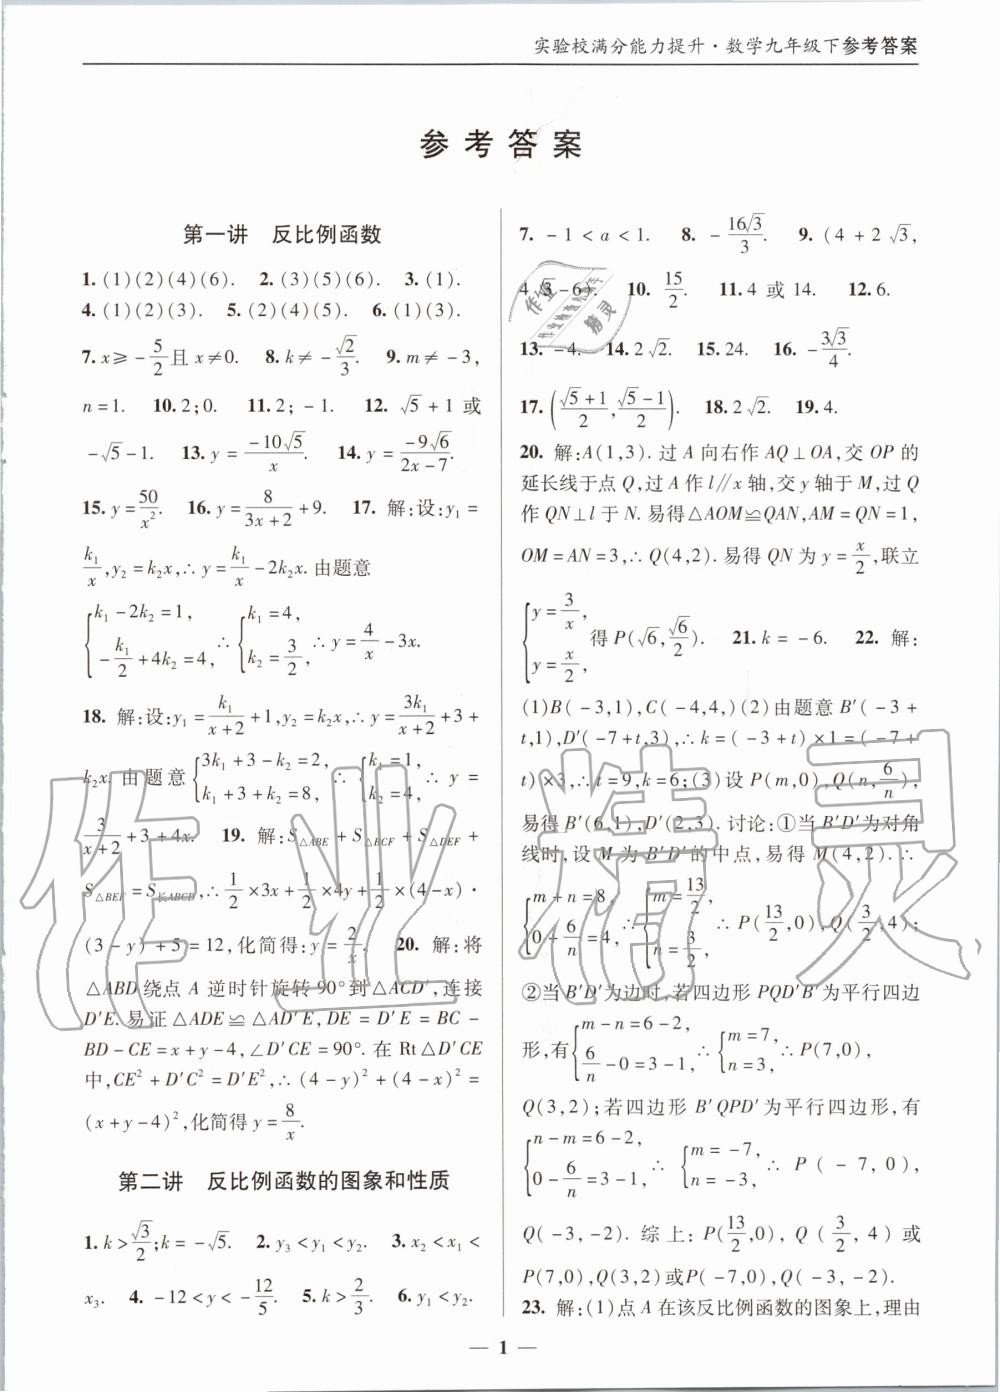 实验校满分能力提升·数学九年级下参考答案
参考答案
第一讲 反比例函数
1. (1)(2)(4)(6). 2. (3)(5)(6). 3. (1).
4. (1)(2)(3). 5. (2)(4)(5). 6. (1)(3).
7. x≥-5/2且x≠0. 8. k≠-√2/3. 9. m≠-3,
n=1. 10. 2;0. 11. 2;-1. 12. √5+1或
-√5-1. 13. y=-10√5/x. 14. y=-9√6/(2x-7).
15. y=50/x². 16. y=8/(3x+2)+9. 17. 解:设:y₁=
k₁/x,y₂=k₂x,∴y=k₁/x-2k₂x.由题意
{k₁-2k₂=1, -k₁/2+4k₂=4, ∴{k₁=4, k₂=3/2, ∴y=4/x-3x.
18. 解:设:y₁=k₁/(x+2)+1,y₂=k₂x,∴y=3k₁/(x+2)+3+
k₂x.由题意{3k₁+3-k₂=2, k₁+3+k₂=8, ∴{k₁=1, k₂=4, ∴y=
3/(x+2)+3+4x. 19. 解:S△ABE+S△BCF+S△DEF+
S△BEF=S长ABCD,∴1/2×3x+1/2×4y+1/2×(4-x)·
(3-y)+5=12,化简得:y=2/x. 20. 解:将
△ABD绕点A逆时针旋转90°到△ACD′,连接
D′E.易证△ADE≌△AD′E,DE=D′E=BC-
BD-CE=x+y-4,∠D′CE=90°.在Rt△D′CE
中,CE²+D′C²=D′E²,∴(4-y)²+(4-x)²=
(x+y-4)²,化简得y=8/x.
第二讲 反比例函数的图象和性质
1. k>√3/2;k=-√5. 2. y₃<y₁<y₂. 3. x₂<x₁<
x₃. 4. -12<y<-12/5. 5. k>2/3. 6. y₁<y₂.
7. -1<a<1. 8. -16√3/3. 9. (4+2√3,
4√3-6). 10. 15/2. 11. 4或14. 12. 6.
13. -4. 14. 2√2. 15. 24. 16. -3√3/4.
17. ((√5+1)/2,(√5-1)/2). 18. 2√2. 19. 4.
20. 解:A(1,3).过A向右作AQ⊥OA,交OP的
延长线于点Q,过A作l∥x轴,交y轴于M,过Q
作QN⊥l于N.易得△AOM≌QAN,AM=QN=1,
OM=AN=3,∴Q(4,2).易得QN为y=x/2,联立
{y=3/x, y=x/2, 得P(√6,√6/2). 21. k=-6. 22. 解:
(1)B(-3,1),C(-4,4,)(2)由题意B′(-3+
t,1),D′(-7+t,3),∴k=(-3+t)×1=(-7+
t)×3,∴t=9,k=6;(3)设P(m,0),Q(n,6/n),
易得B′(6,1),D′(2,3).讨论:①当B′D′为对角
线时,设M为B′D′的中点,易得M(4,2).∴
{m+n=8, 0+6/n=4, ∴{m=13/2, n=3/2, ∴P(13/2,0),Q(3/2,4);
②当B′D′为边时,若四边形PQD′B′为平行四边
形,有{m-n=6-2, 6/n-0=3-1, ∴{m=7, n=3, ∴P(7,0),
Q(3,2);若四边形B′QPD′为平行四边形,有
{n-m=6-2, 0-6/n=3-1, ∴{m=-7, n=-3, ∴P(-7,0),
Q(-3,-2).综上:P(13/2,0),Q(3/2,4)或
P(7,0),Q(3,2)或P(-7,0),Q(-3,-2).
23. 解:(1)点A在该反比例函数的图象上,理由
— 1 —
作业精灵